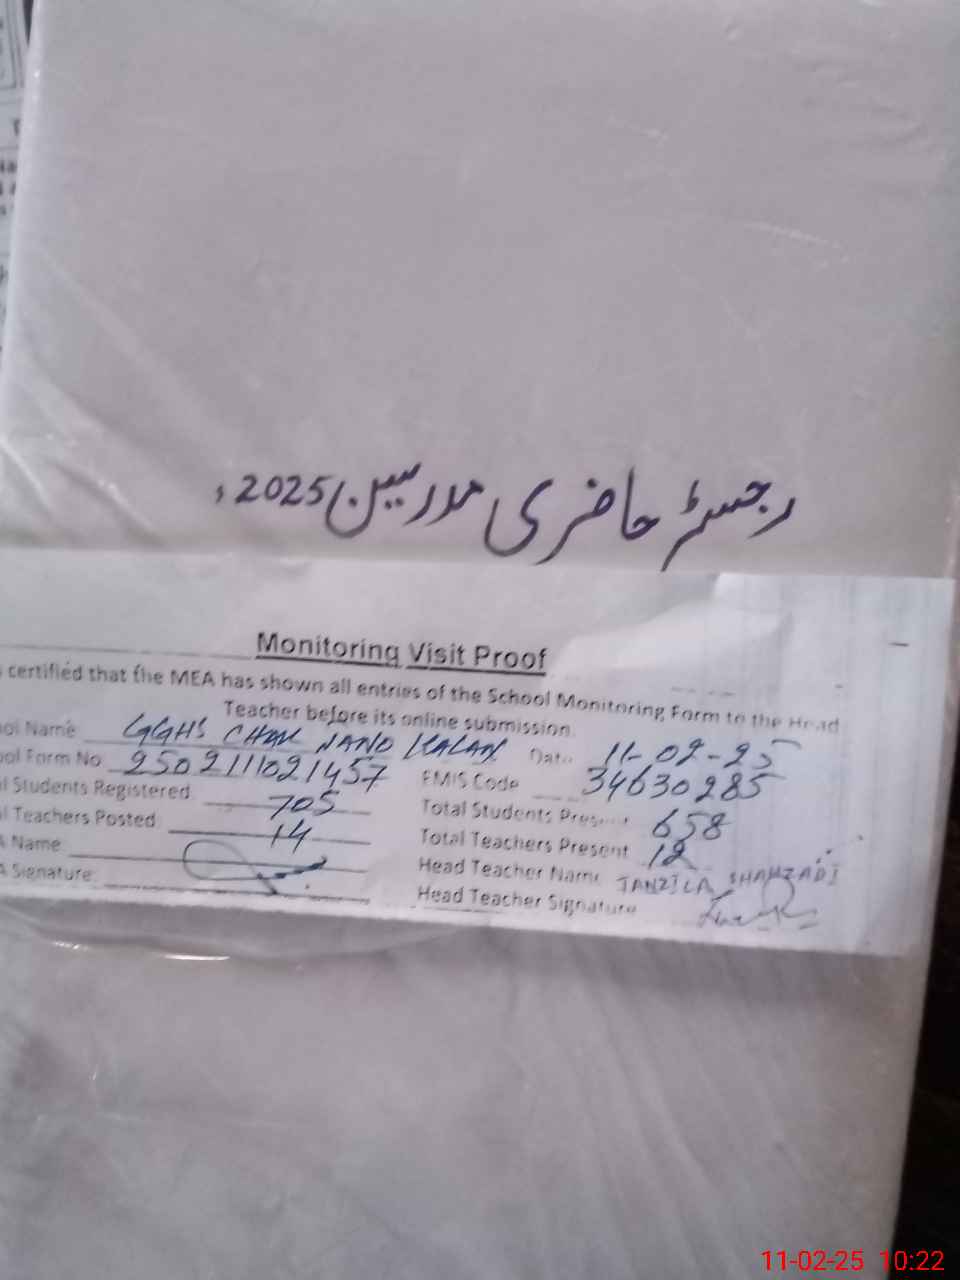 رجسٹر حاضری مدرسین 2025ء
Monitoring Visit Proof
certified that the MEA has shown all entries of the School Monitoring Form to the Head
Teacher before its online submission.
ool Name GGHS CHAK NANO KALAN Date 11-02-25
ool Form No 2502111021457 EMIS Code 34630285
l Students Registered 705 Total Students Present 658
l Teachers Posted 14 Total Teachers Present 12
A Name Head Teacher Name TANZILA SHAHZADI
A Signature: Head Teacher Signature
11-02-25 10:22